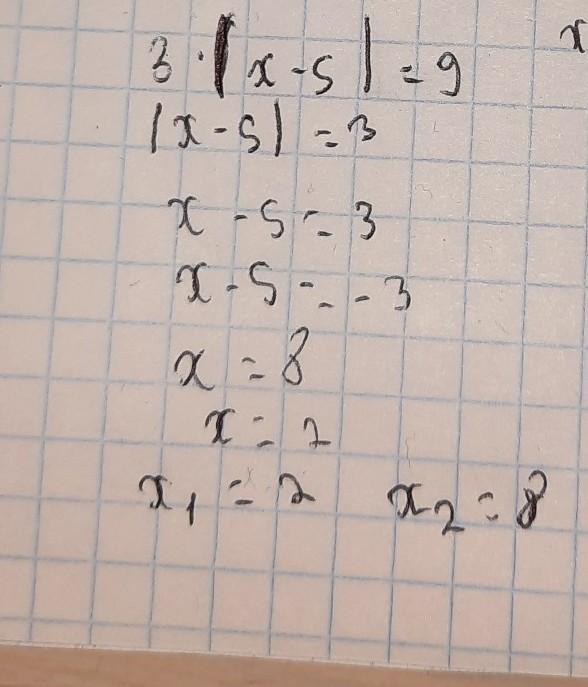 3 · |x - 5| = 9
x
|x - 5| = 3
x - 5 = 3
x - 5 = -3
x = 8
x = 2
x₁ = 2 x₂ = 8